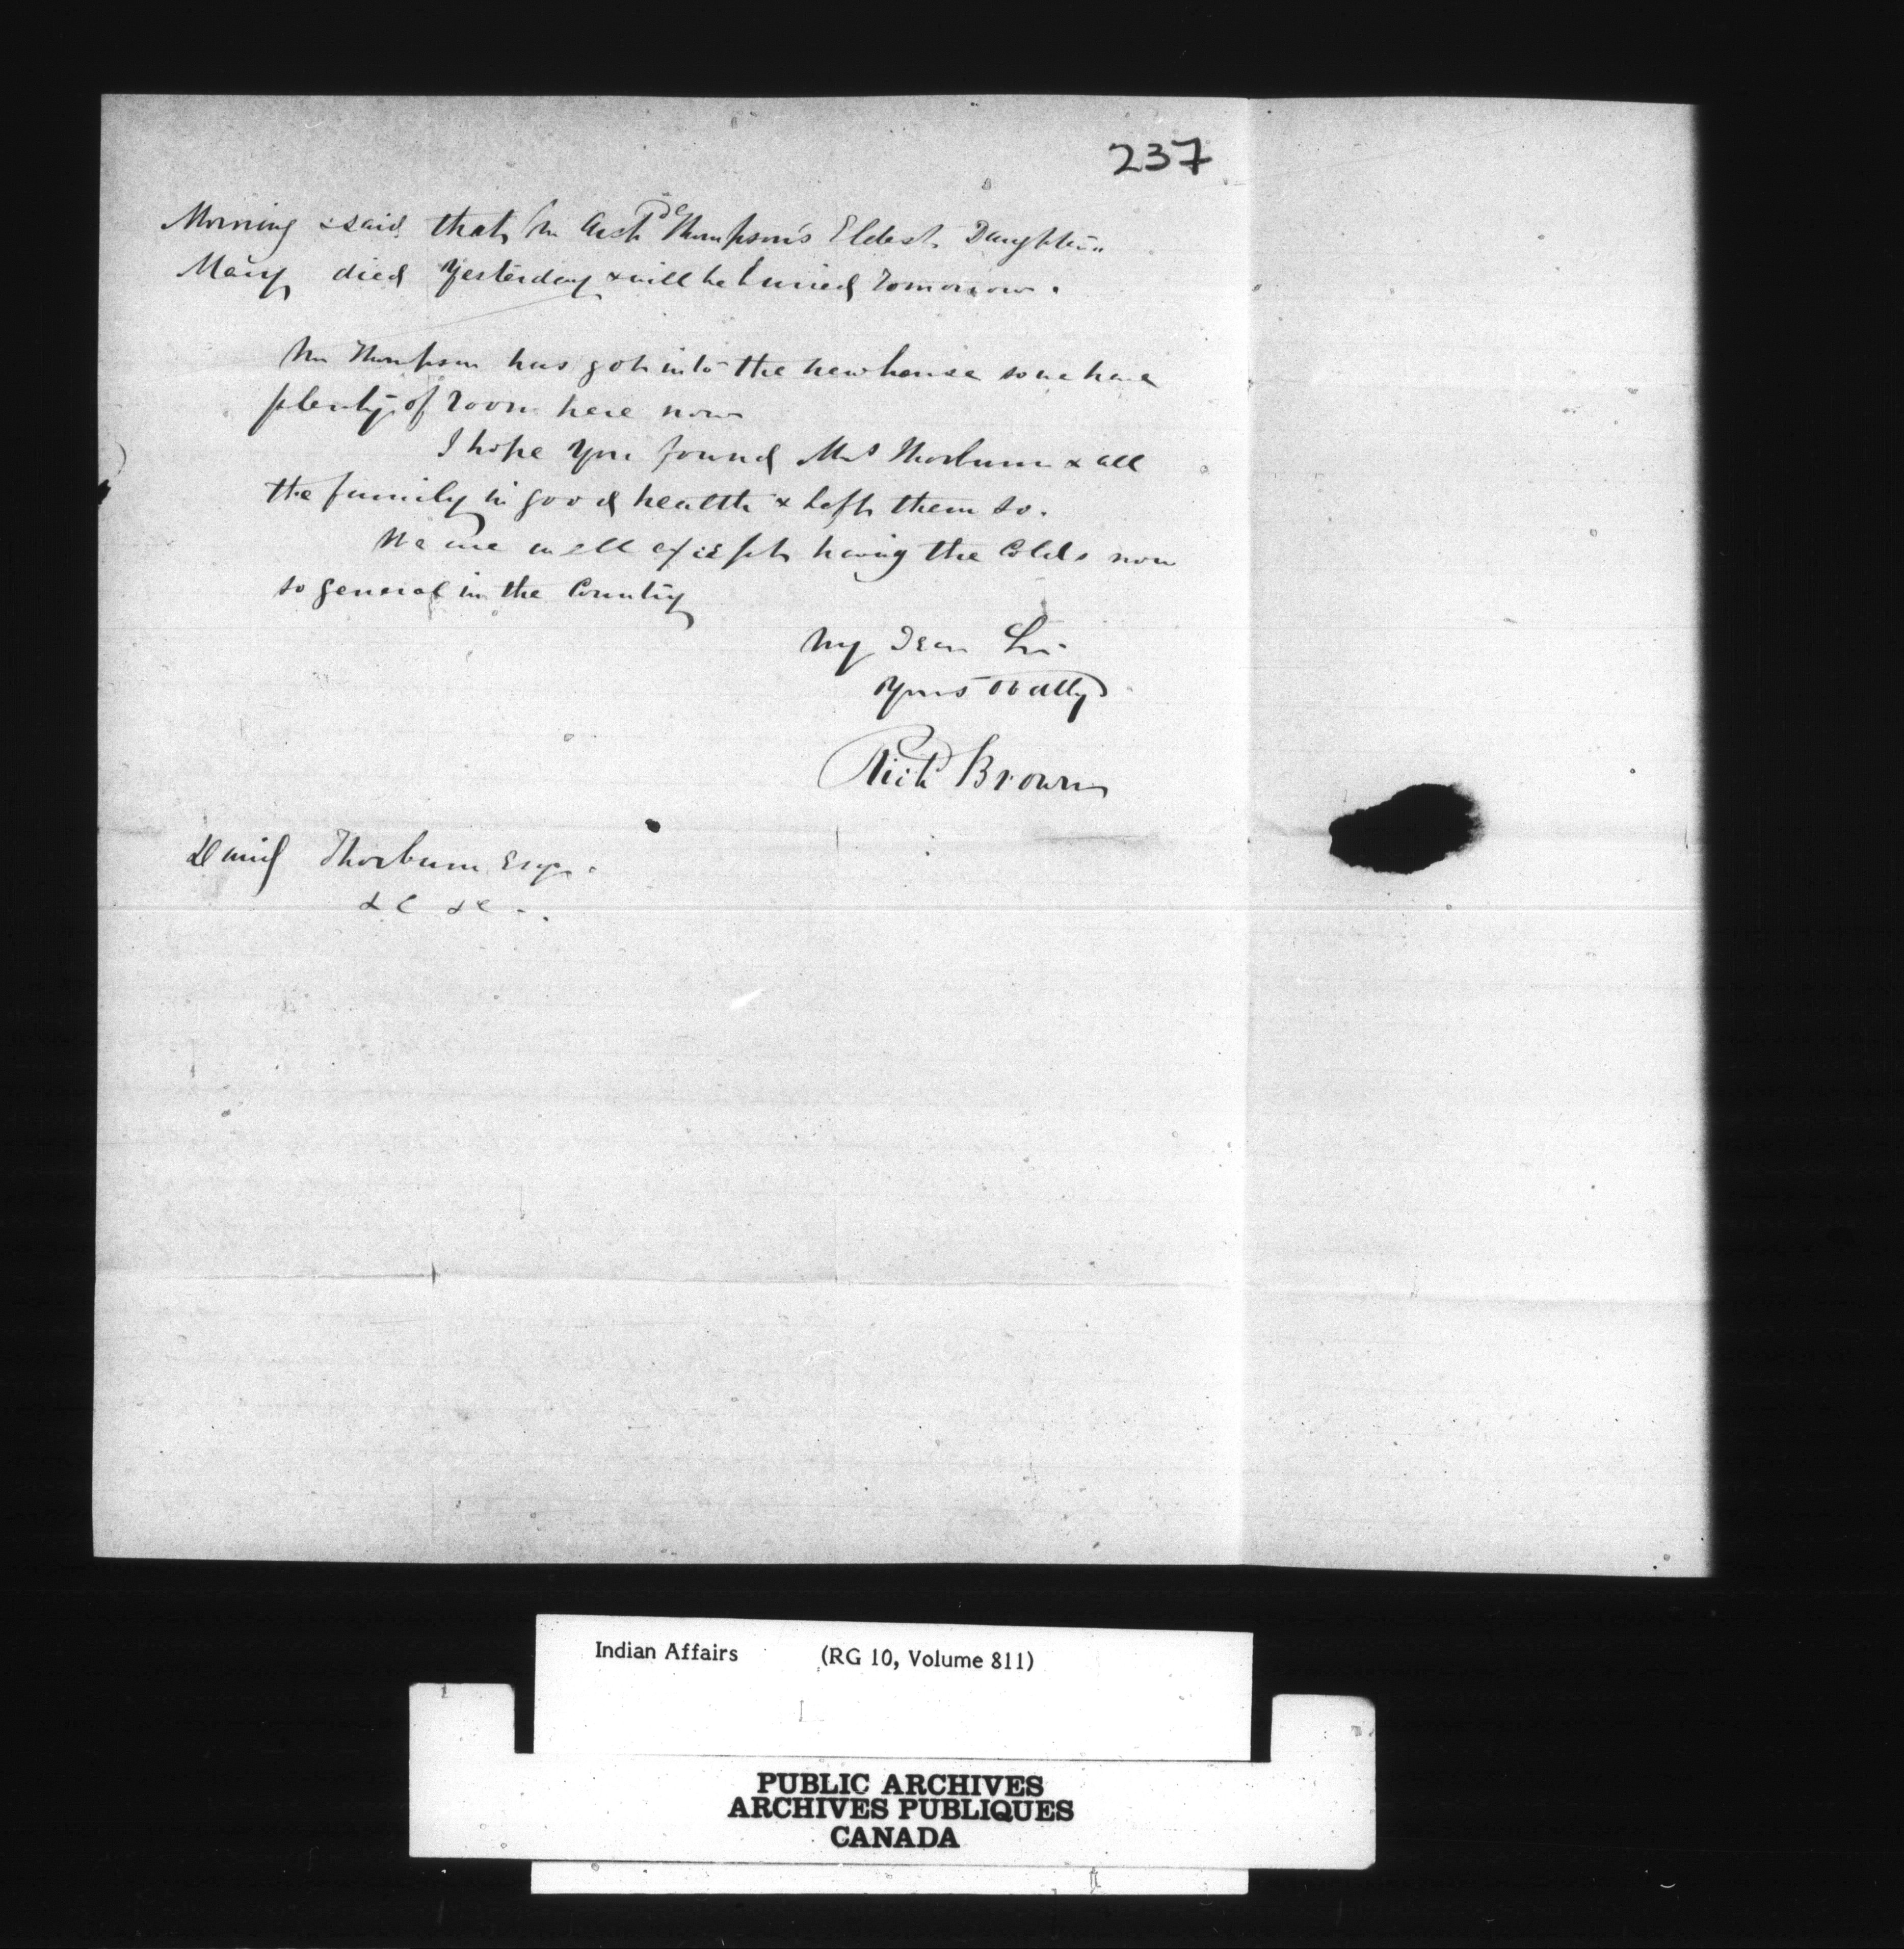 237
Morning & said that Mr Archd Thompson's Eldest Daughter
Mary died Yesterday & will be buried Tomorrow.
Mr Thompson has got into the new house so we have
plenty of room here now
I hope you found Mrs Thorburn & all
the family in good health & left them so.
We are well except having the Colds now
so general in the Country
My Dear Sir
Yours
Richd Brown
David Thorburn Esqr.
&c &c
Indian Affairs (RG 10, Volume 811)
PUBLIC ARCHIVES
ARCHIVES PUBLIQUES
CANADA